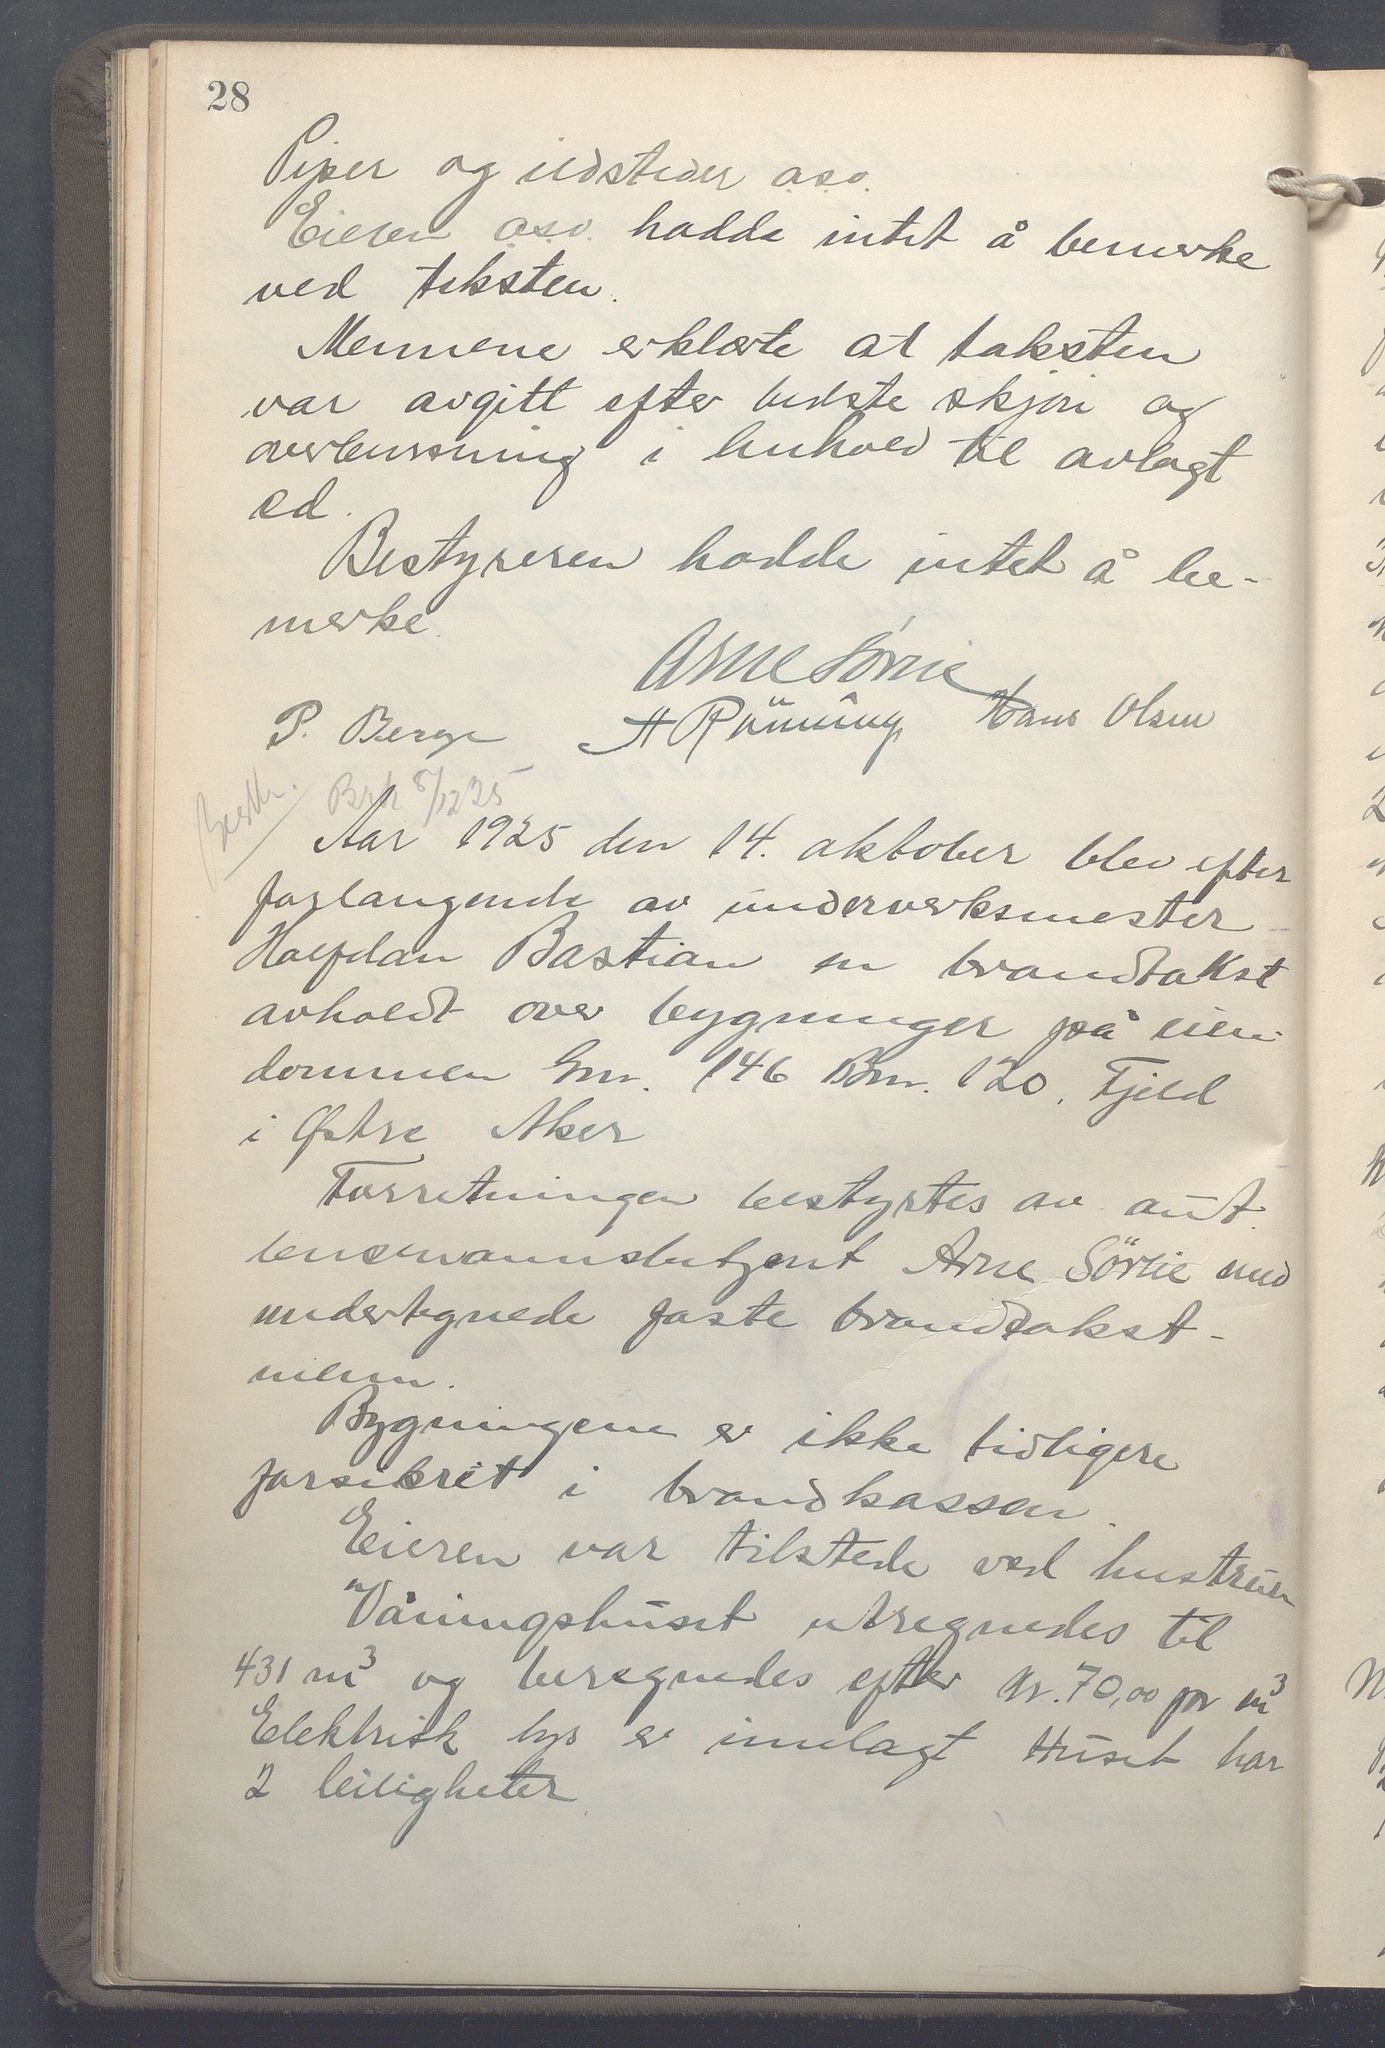 28
Piper og ildsteder o.s.v.
Eieren o.s.v. hadde intet å bemerke
ved teksten.
Mennene erklærte at taksten
var avgitt efter bedste skjøn og
overbevisning i henhold til avlagt
ed.
Bestyreren hadde intet å be-
merke.
Arne Sörlie
P. Berge A Rönning Hans Olsen
Besikt. Bsk 8/12 25
Aar 1925 den 14. oktober blev efter
forlangende av underverksmester
Halfdan Bastian en brandtakst
avholdt over bygninger på eien-
dommen Gnr. 146 Bnr. 120, Fjeld
i Østre Aker
Forretningen bestyrtes av aut.
lensmannsbetjent Arne Sörlie med
undertegnede faste brandtakst-
menn.
Bygningene er ikke tidligere
forsikret i brandkassen.
Eieren var tilstede ved hustruen
"Våningshuset utregnedes til
431 m³ og beregnedes efter Kr. 70,00 pr m³
Elektrisk lys er innlagt Huset har
2 leiligheter